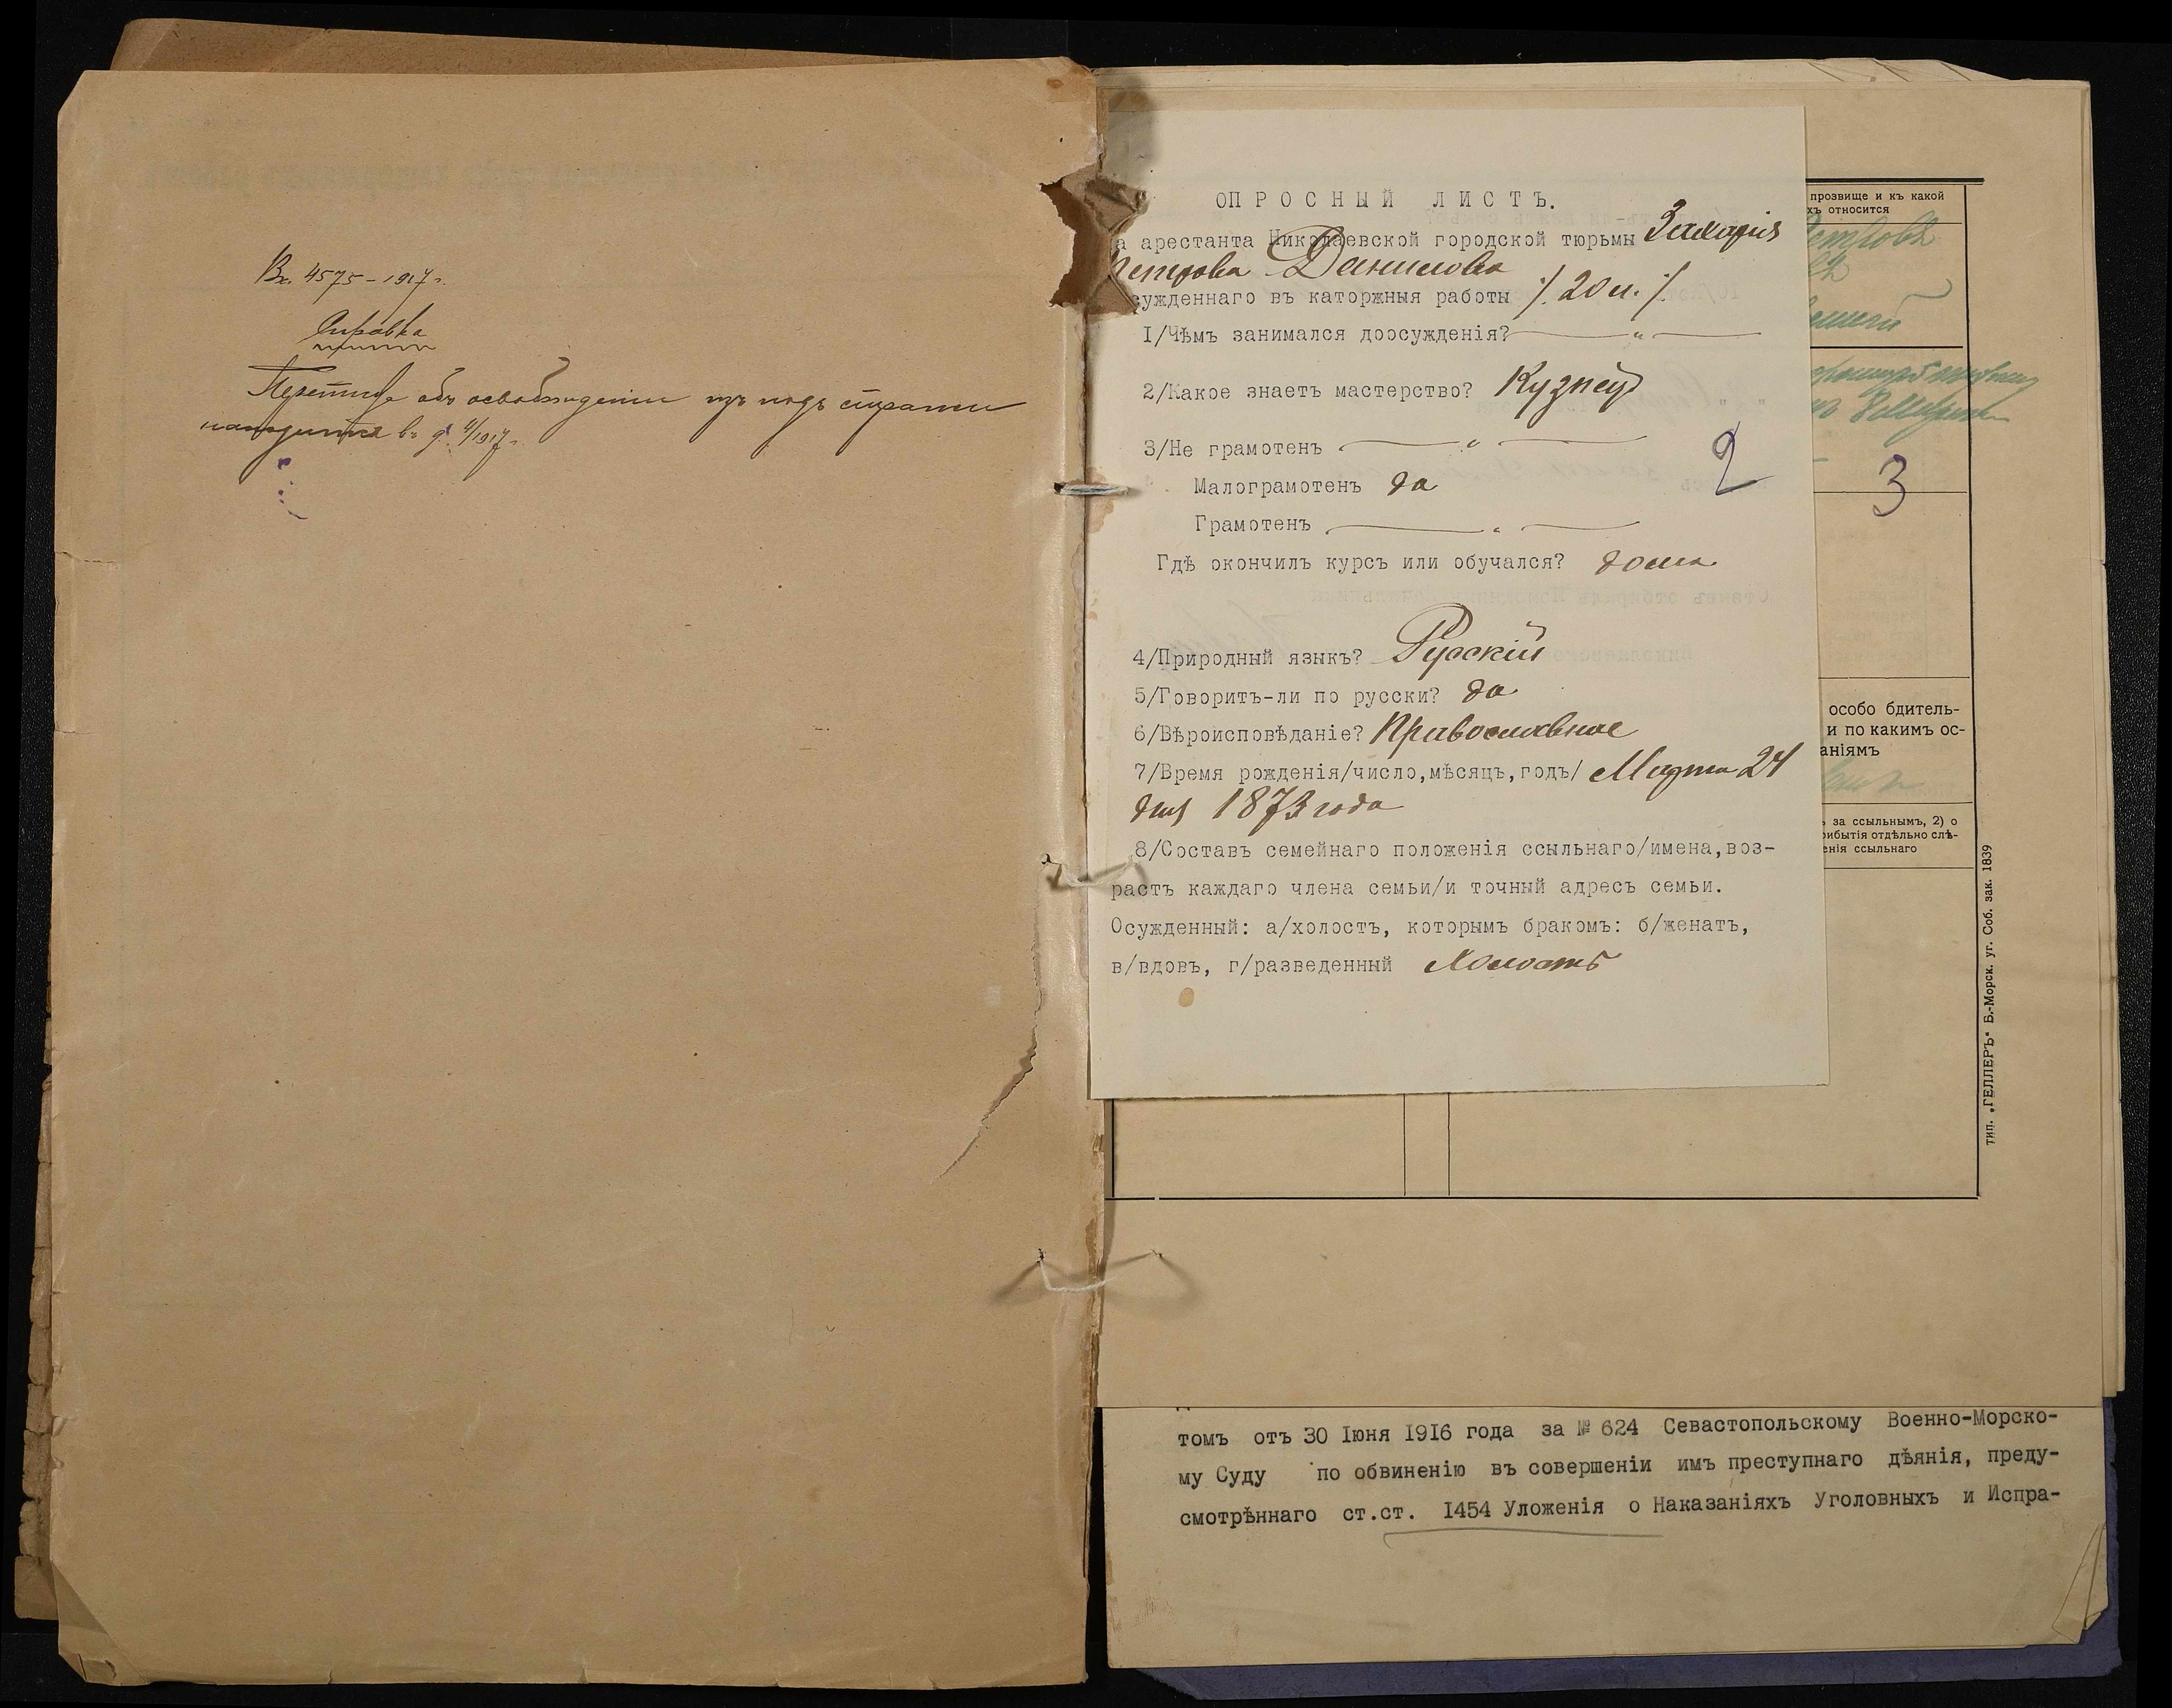 Вх. 4575 – 1917 г.
Справка
Переписка объ освобожденіи изъ подъ стражи
находится въ д. 4/1917 г.
ОПРОСНЫЙ ЛИСТЪ.
а арестанта Николаевской городской тюрьмы Захарія
Петрова Данилова
сужденнаго въ каторжныя работы /. 20 л. /.
1/Чѣмъ занимался доосужденія? — " —
2/Какое знаетъ мастерство? Кузнец
3/Не грамотенъ — " —
Малограмотенъ да
2
Грамотенъ — " —
Гдѣ окончилъ курсъ или обучался? дома
4/Природный языкъ? Русскій
5/Говоритъ-ли по русски? да
6/Вѣроисповѣданіе? Православное
7/Время рожденія/число,мѣсяцъ,годъ/ Марта 24
дня 1873 года
8/Составъ семейнаго положенія ссыльнаго/имена,воз-
растъ каждаго члена семьи/и точный адресъ семьи.
Осужденный: а/холостъ, которымъ бракомъ: б/женатъ,
в/вдовъ, г/разведенный Холостъ
прозвище и къ какой
хъ относится
3
особо бдитель-
и по какимъ ос-
аніямъ
ь за ссыльнымъ, 2) о
рибытія отдѣльно слѣ-
енія ссыльнаго
тип. „ГЕЛЛЕРЪ“ Б.-Морск. уг. Соб. зак. 1839
томъ отъ 30 Іюня 1916 года за № 624 Севастопольскому Военно-Морско-
му Суду по обвиненію въ совершеніи имъ преступнаго дѣянія, преду-
смотрѣннаго ст.ст. 1454 Уложенія о Наказаніяхъ Уголовныхъ и Испра-